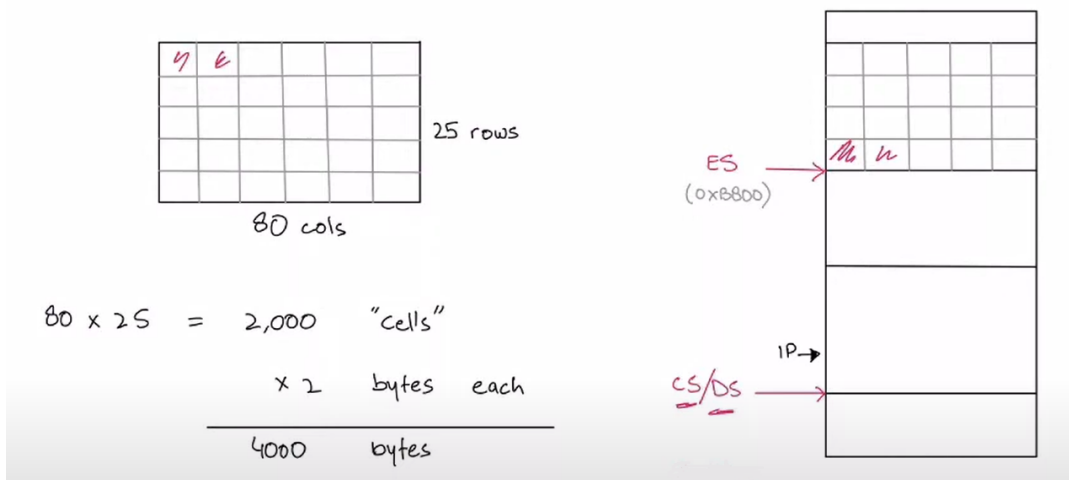 25 rows
80 cols
80 x 25 = 2,000 "cells"
x 2 bytes each
4000 bytes
ES
(0xB800)
IP
CS/DS